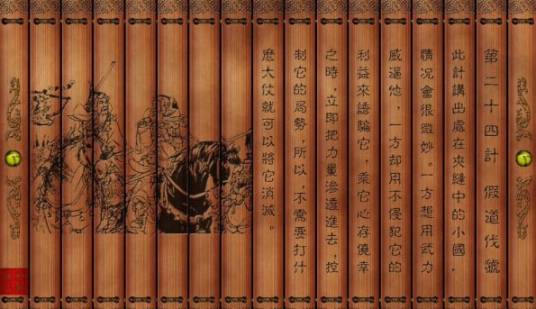 第二十四計 假道伐虢
此計講出處在夾縫中的小國，
情況會很微妙。一方想用武力
威逼他，一方卻用不侵犯它的
利益來誘騙它，乘它心存僥幸
之時，立即把力量滲透進去，控
制它的局勢，所以，不需要打什
麽大仗就可以將它消滅。